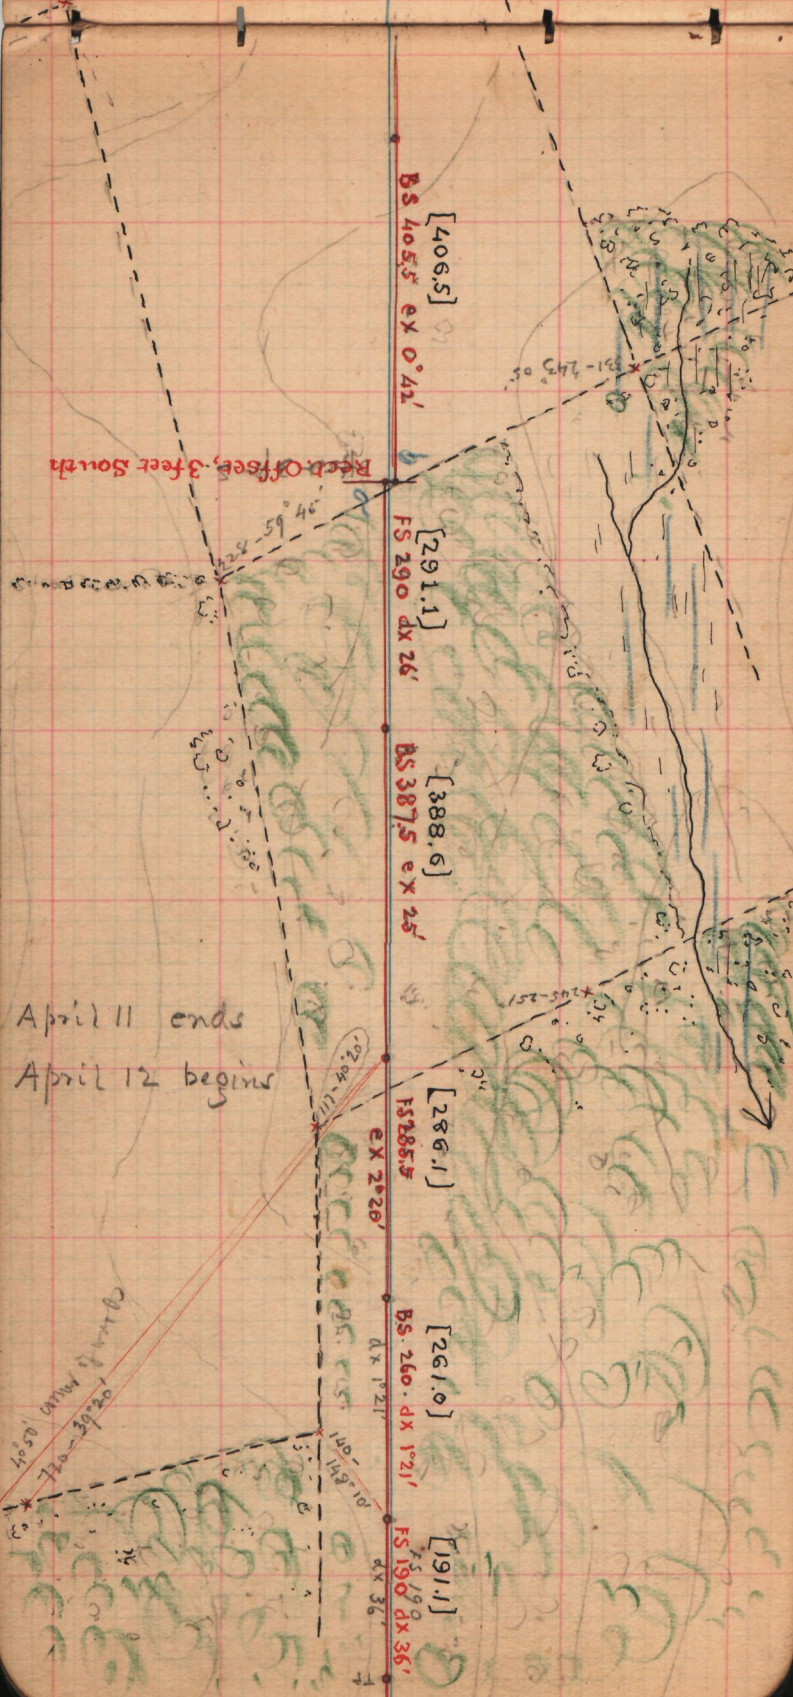 [406.5]
BS 405.5 ex 0°42'
331-243°05'
Rect. Offset, 3 feet South
228-59°45'
b
a
[291.1]
FS 290 dx 26'
[388.6]
BS 387.5 ex 25'
245-251°
April 11 ends
April 12 begins
117-40°20'
[286.1]
FS 285.5
ex 2°20'
[261.0]
BS. 260. dx 1°21'
dx 1°21'
40°50' corner of
720-39°20'
140-
148°10'
[191.1]
FS 190
FS 190 dx 36'
dx 36'